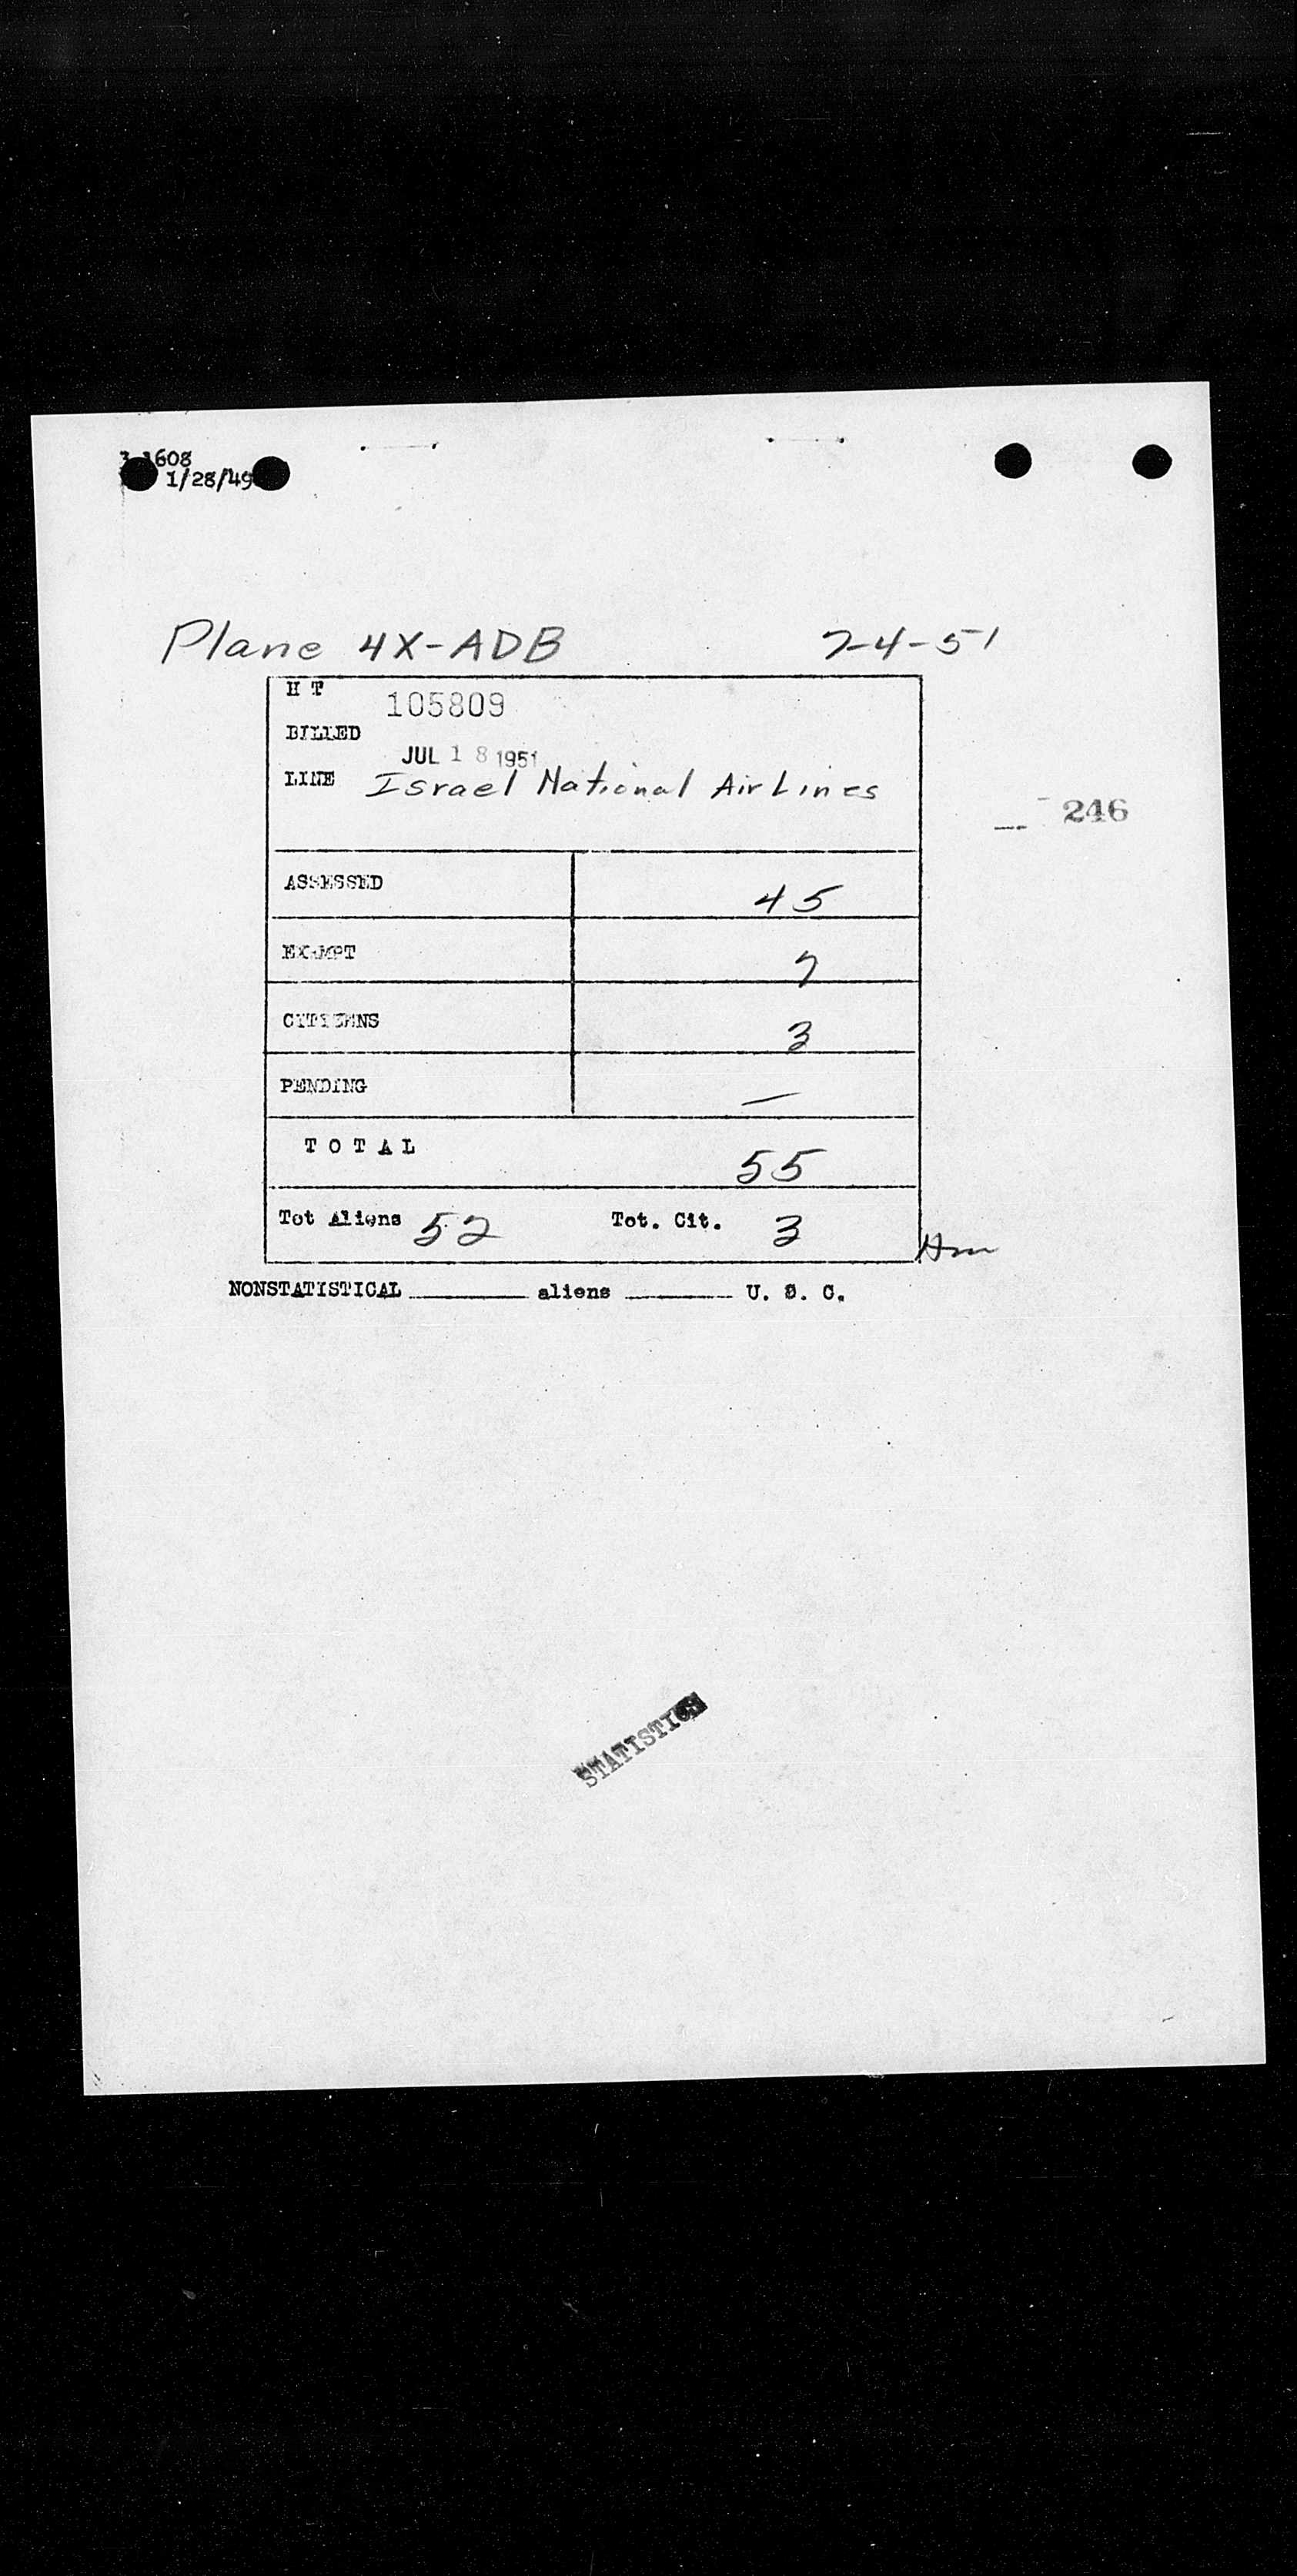 1608
1/28/49
Plane 4X-ADB 7-4-51
H T 105809
BILLED
JUL 18 1951
LINE Israel National AirLines
246
ASSESSED 45
EXEMPT 7
CITIZENS 3
PENDING —
TOTAL 55
Tot Aliens 52 Tot. Cit. 3
NONSTATISTICAL ______ aliens ______ U. S. C.